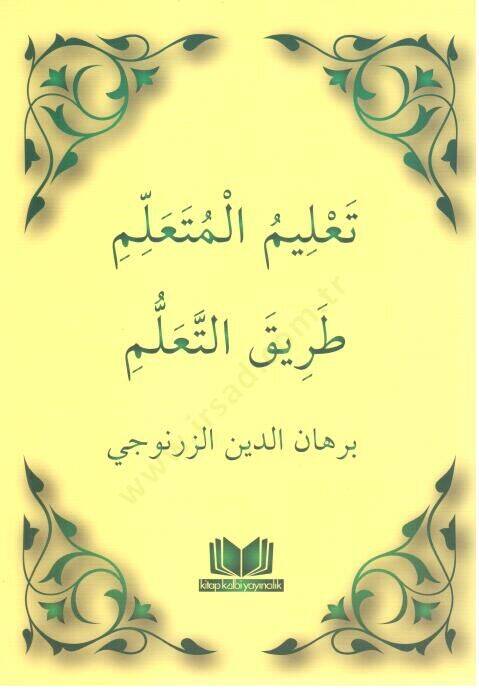 تَعْلِيمُ الْمُتَعَلِّمِ
طَرِيقَ التَّعَلُّمِ
برهان الدين الزرنوجي
kitap kalbi yayıncılık